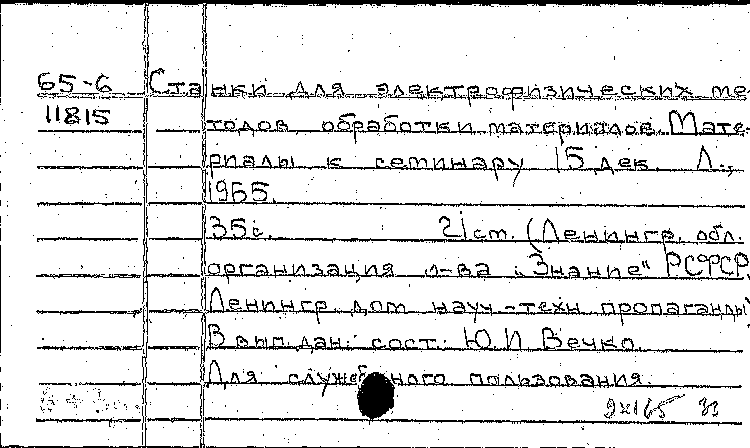 65-6 Станки для электрофизических ме-
11815 тодов обработки материалов. Мате-
риалы к семинару 15 дек. Л.,
1965.
35 с. 21 см. (Ленингр. обл.
организация о-ва "Знание" РСФСР.
Ленингр. дом науч-техн. пропаганды)
В вып. дан.: сост.: Ю.И. Вечко
Для служебного пользования.